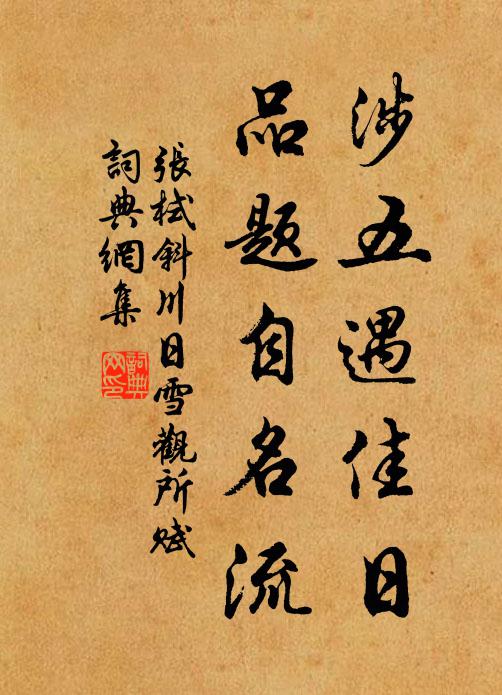 涉五遇佳日
品题自名流
張栻斜川日雪觀所赋
詞典網集
詞典网印